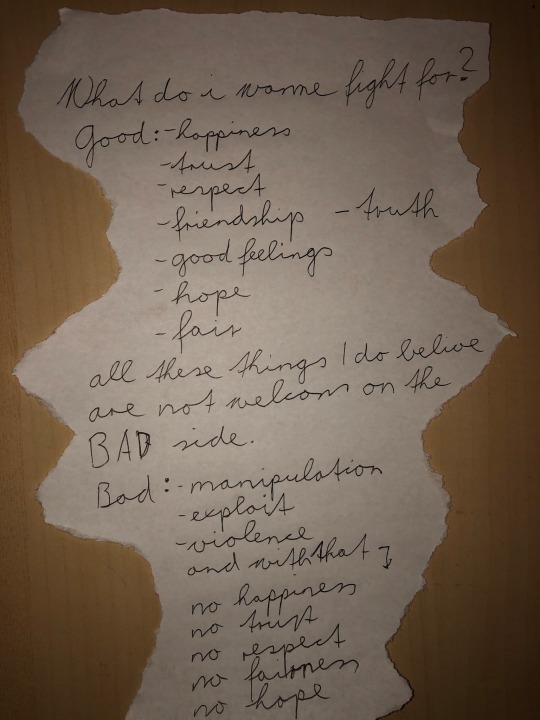 What do i wanne fight for?
Good: - happiness
- trust
- respect
- friendship - truth
- good feelings
- hope
- fair
all these things I do belive
are not welcom on the
BAD side.
Bad: - manipulation
- exploit
- violence
and with that ↴
no happiness
no trust
no respect
no fairness
no hope